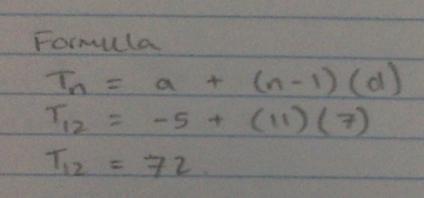 Formula
Tn = a + (n-1)(d)
T12 = -5 + (11)(7)
T12 = 72